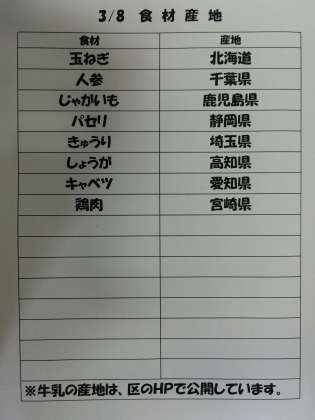 3/8 食材産地
食材 産地
玉ねぎ 北海道
人参 千葉県
じゃがいも 鹿児島県
パセリ 静岡県
きゅうり 埼玉県
しょうが 高知県
キャベツ 愛知県
鶏肉 宮崎県
※牛乳の産地は、区のHPで公開しています。